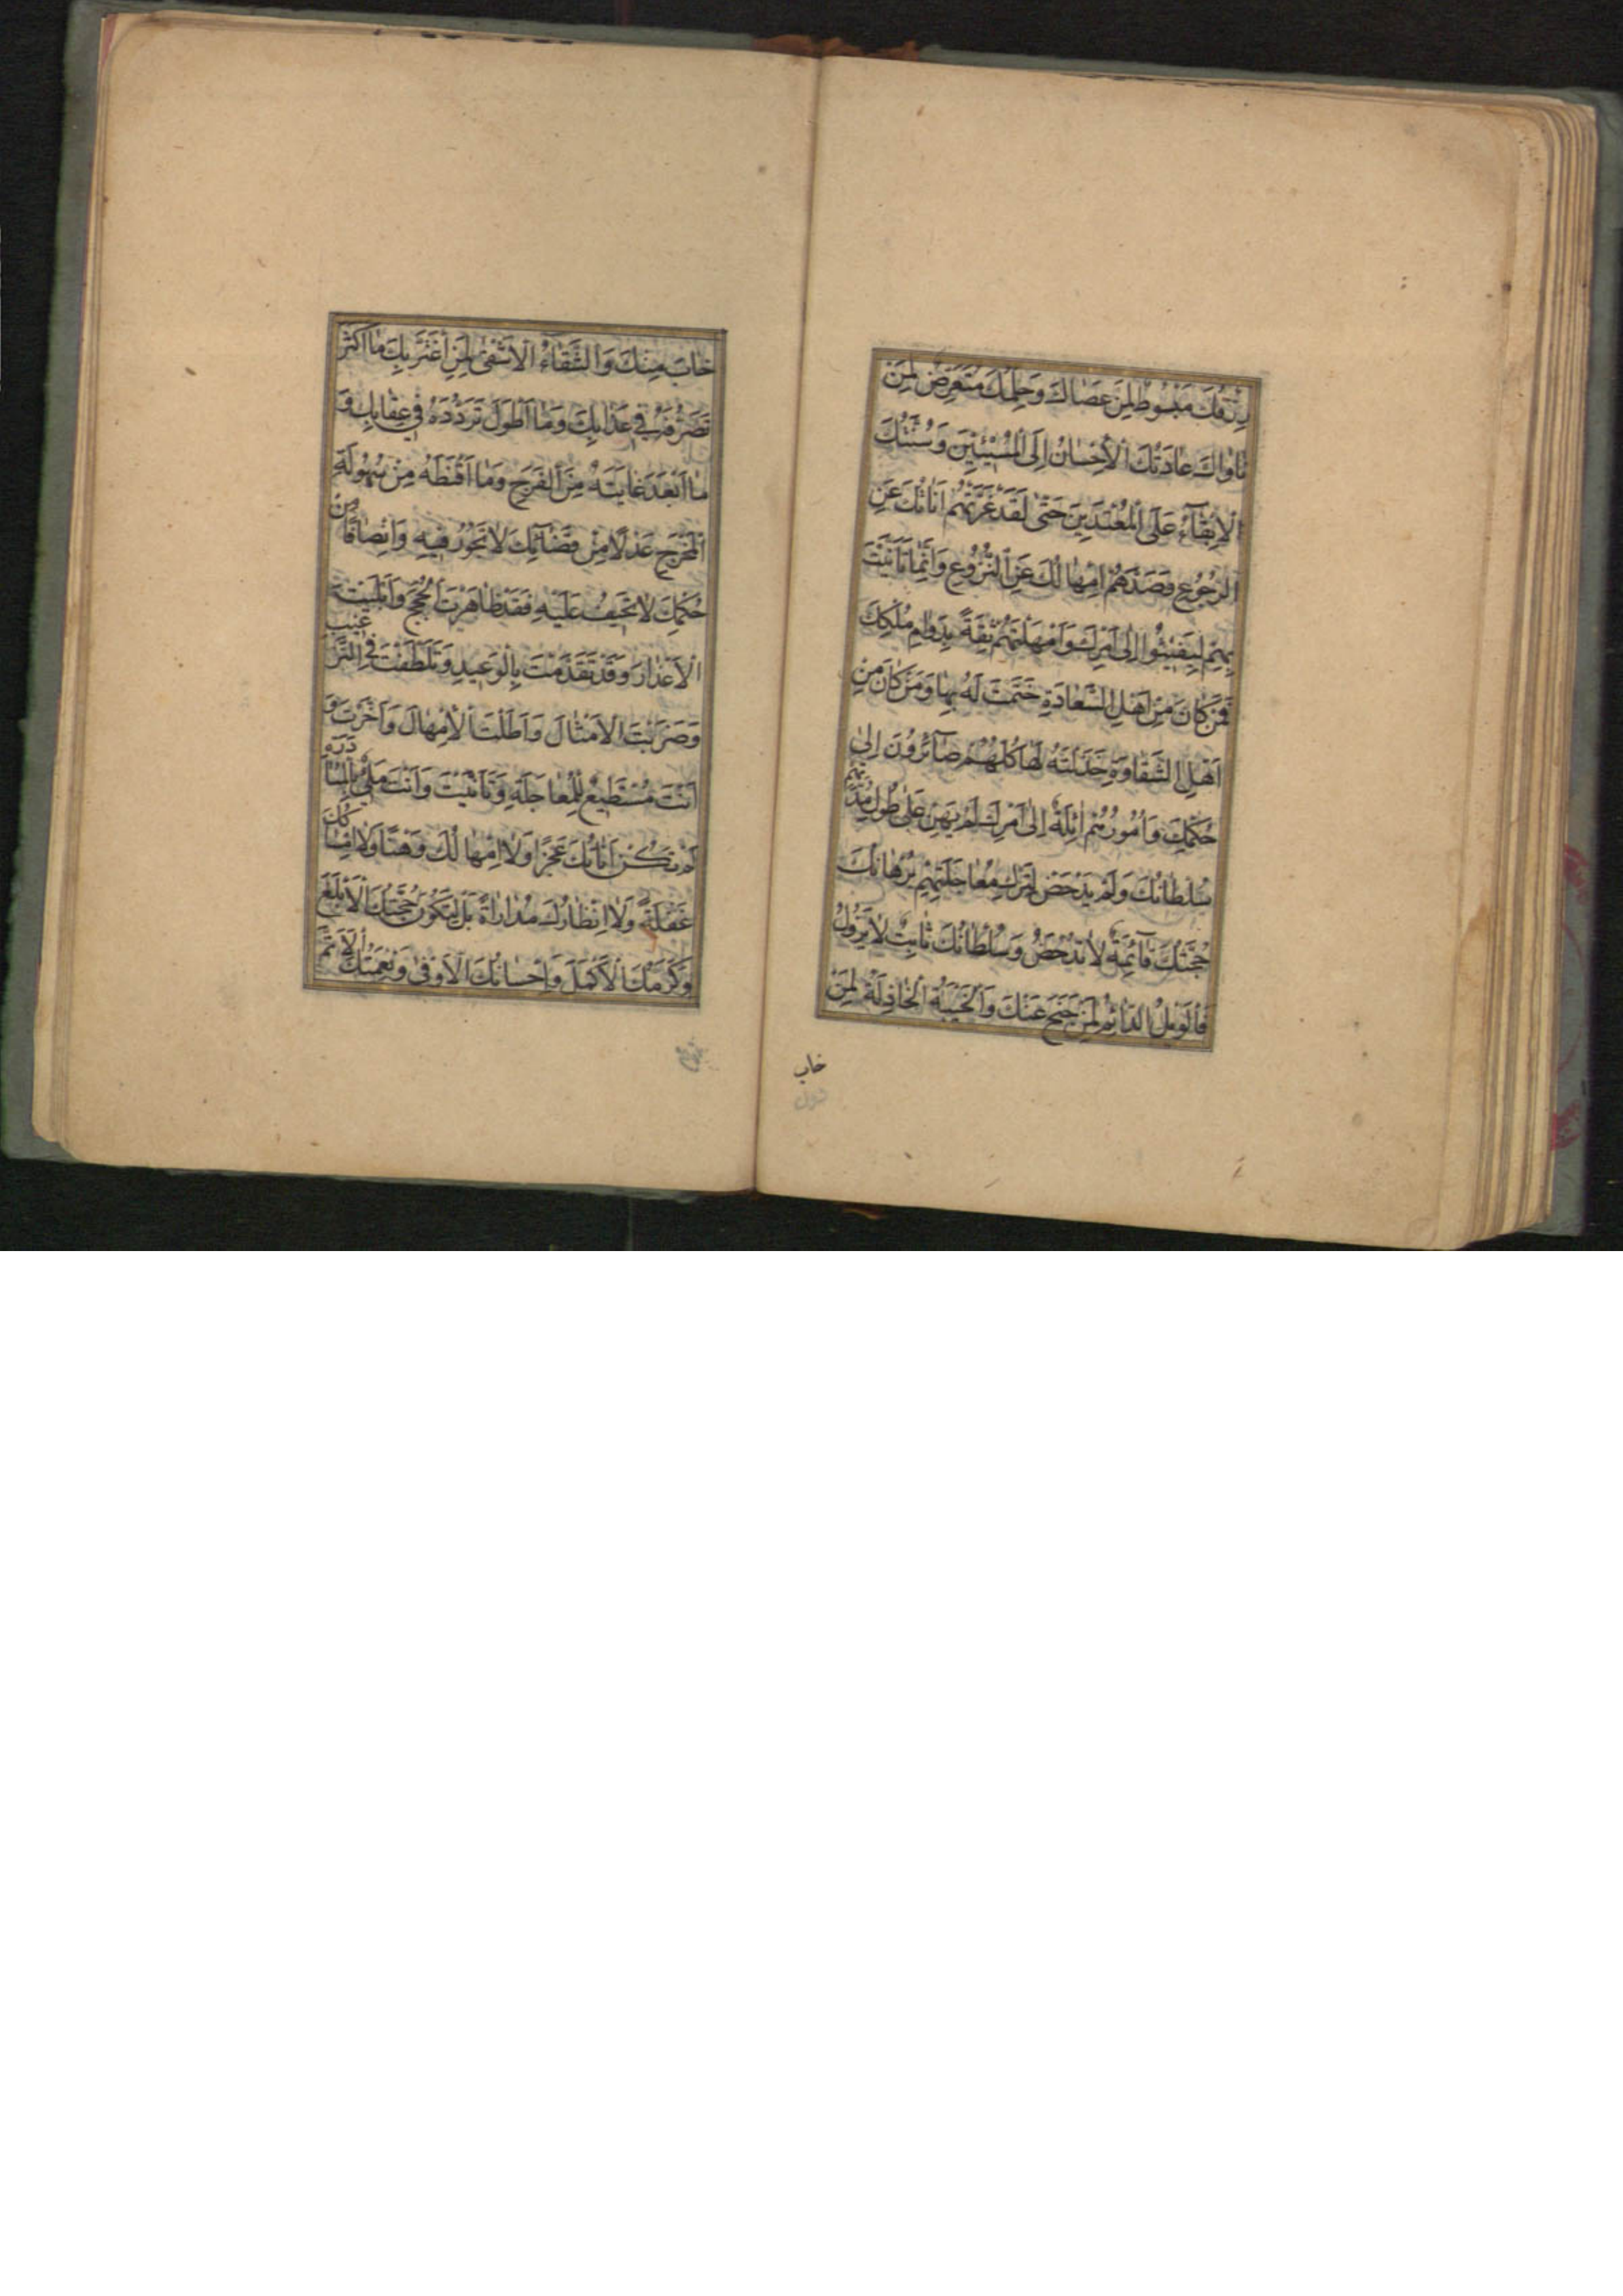 رِزْقُكَ مَبْسُوطٌ لِمَنْ عَصَاكَ وَحِلْمُكَ مُتَعَرِّضٌ لِمَنْ
نَاوَاكَ عَادَتُكَ الْاِحْسَانُ اِلَى الْمُسِيئِينَ وَسُنَّتُكَ
الْاِبْقَاءُ عَلَى الْمُعْتَدِينَ حَتّٰى لَقَدْ غَرَّتْهُمْ اَنَاتُكَ عَنِ
الرُّجُوعِ وَصَدَّهُمْ اِمْهَالُكَ عَنِ النُّزُوعِ وَاِنَّمَا تَاَنَّيْتَ
بِهِمْ لِيَفِيئُوا اِلٰى اَمْرِكَ وَاَمْهَلْتَهُمْ ثِقَةً بِدَوَامِ مُلْكِكَ
فَمَنْ كَانَ مِنْ اَهْلِ السَّعَادَةِ خَتَمْتَ لَهُ بِهَا وَمَنْ كَانَ مِنْ
اَهْلِ الشَّقَاوَةِ خَذَلْتَهُ لَهَا كُلُّهُمْ صَآئِرُونَ اِلٰى
حُكْمِكَ وَاُمُورُهُمْ اٰئِلَةٌ اِلٰى اَمْرِكَ لَمْ يَهِنْ عَلٰى طُولِ مُدَّتِهِمْ
سُلْطَانُكَ وَلَمْ يَدْحَضْ لِتَرْكِ مُعَاجَلَتِهِمْ بُرْهَانُكَ
حُجَّتُكَ قَآئِمَةٌ لَا تُدْحَضُ وَسُلْطَانُكَ ثَابِتٌ لَا يَزُولُ
فَالْوَيْلُ الدَّائِمُ لِمَنْ جَنَحَ عَنْكَ وَالْخَيْبَةُ الْخَاذِلَةُ لِمَنْ
خاب
خَابَ مِنْكَ وَالشَّقَاءُ الْاَشْقٰى لِمَنِ اغْتَرَّ بِكَ مَا اَكْثَرَ
تَصَرُّفَهُ فِي عَذَابِكَ وَمَا اَطْوَلَ تَرَدُّدَهُ فِي عِقَابِكَ وَ
مَا اَبْعَدَ غَايَتَهُ مِنَ الْفَرَجِ وَمَا اَقْنَطَهُ مِنْ سُهُولَةِ
الْمَخْرَجِ عَدْلًا مِنْ قَضَآئِكَ لَا تَجُورُ فِيهِ وَاِنْصَافًا مِنْ
حُكْمِكَ لَا تَحِيفُ عَلَيْهِ فَقَدْ ظَاهَرْتَ الْحُجَجَ وَاَبْلَيْتَ
الْاَعْذَارَ وَقَدْ تَقَدَّمْتَ بِالْوَعِيدِ وَتَلَطَّفْتَ فِي التَّرْغِيبِ
وَضَرَبْتَ الْاَمْثَالَ وَاَطَلْتَ الْاِمْهَالَ وَاَخَّرْتَ وَ
اَنْتَ مُسْتَطِيعٌ لِلْمُعَاجَلَةِ وَتَاَنَّيْتَ وَاَنْتَ مَلِيءٌ بِالْمُبَادَرَةِ
لَمْ تَكُنْ اَنَاتُكَ عَجْزًا وَلَا اِمْهَالُكَ وَهْنًا وَلَا اِمْسَاكُكَ
غَفْلَةً وَلَا انْتِظَارُكَ مُدَارَاةً بَلْ لِتَكُونَ حُجَّتُكَ الْاَبْلَغَ
وَكَرَمُكَ الْاَكْمَلَ وَاِحْسَانُكَ الْاَوْفٰى وَنِعْمَتُكَ الْاَتَمَّ